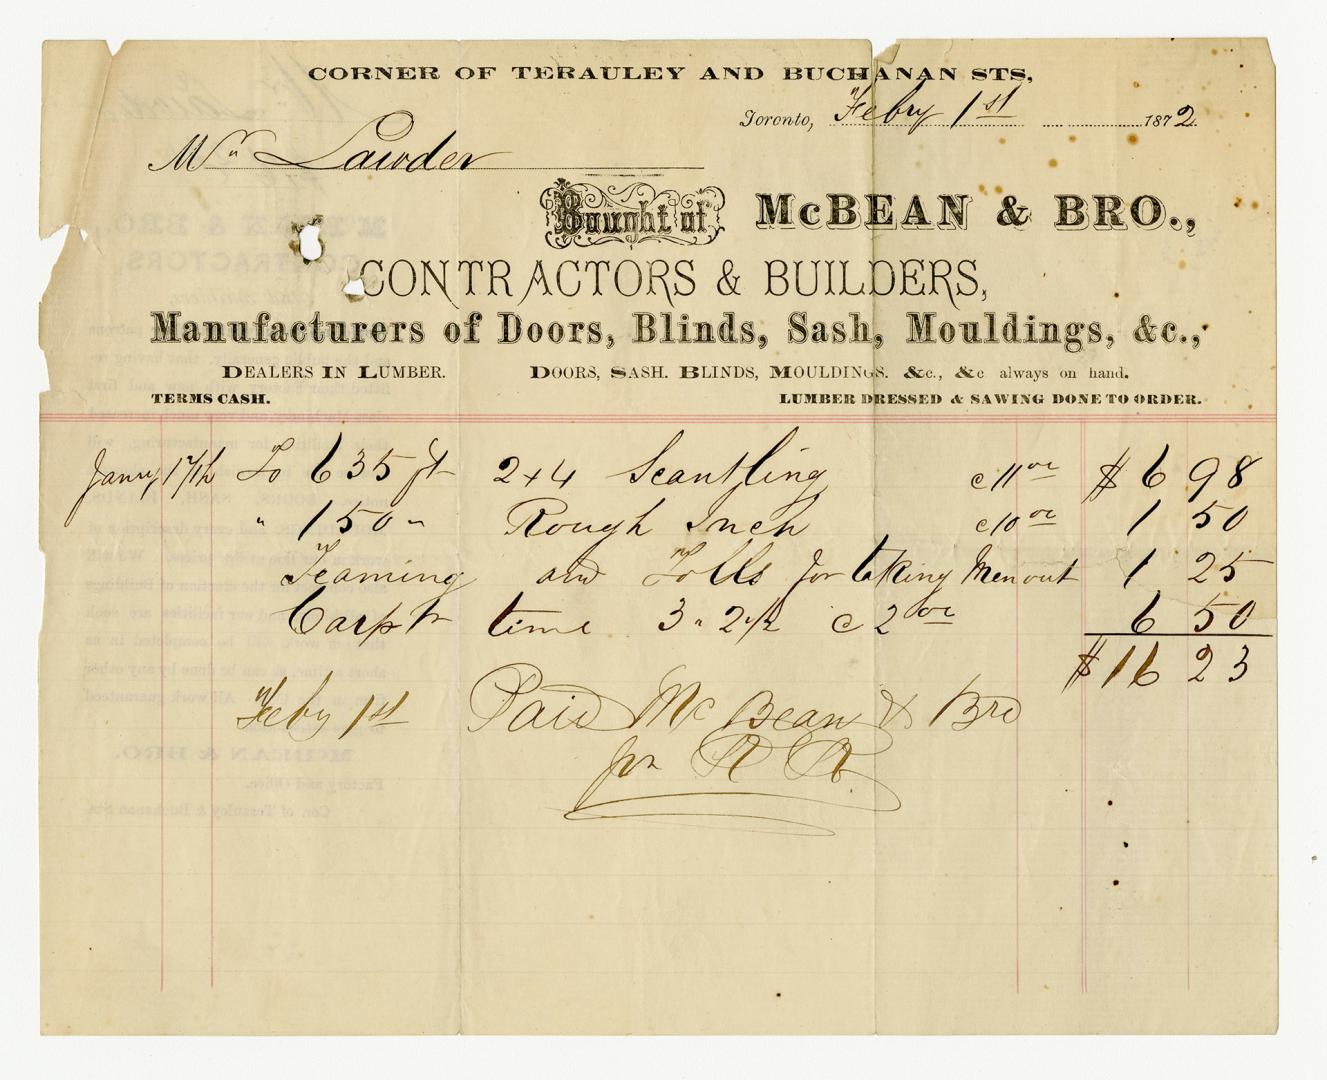 CORNER OF TERAULEY AND BUCHANAN STS,
Toronto, Feby 1st 1872
Mr Lawder
Bought of McBEAN & BRO.,
CONTRACTORS & BUILDERS,
Manufacturers of Doors, Blinds, Sash, Mouldings, &c.,
DEALERS IN LUMBER. DOORS, SASH. BLINDS, MOULDINGS. &c., &c always on hand.
TERMS CASH. LUMBER DRESSED & SAWING DONE TO ORDER.
Jany 17th To 635 ft 2x4 Scantling c 11 00 $ 6 98
" 150 " Rough Inch c 10 00 1 50
Teaming and Tolls for taking Men out 1 25
Carptr time 3 " 2 1/2 c 2 00 6 50
$ 16 23
Feby 1st Paid McBean & Bro